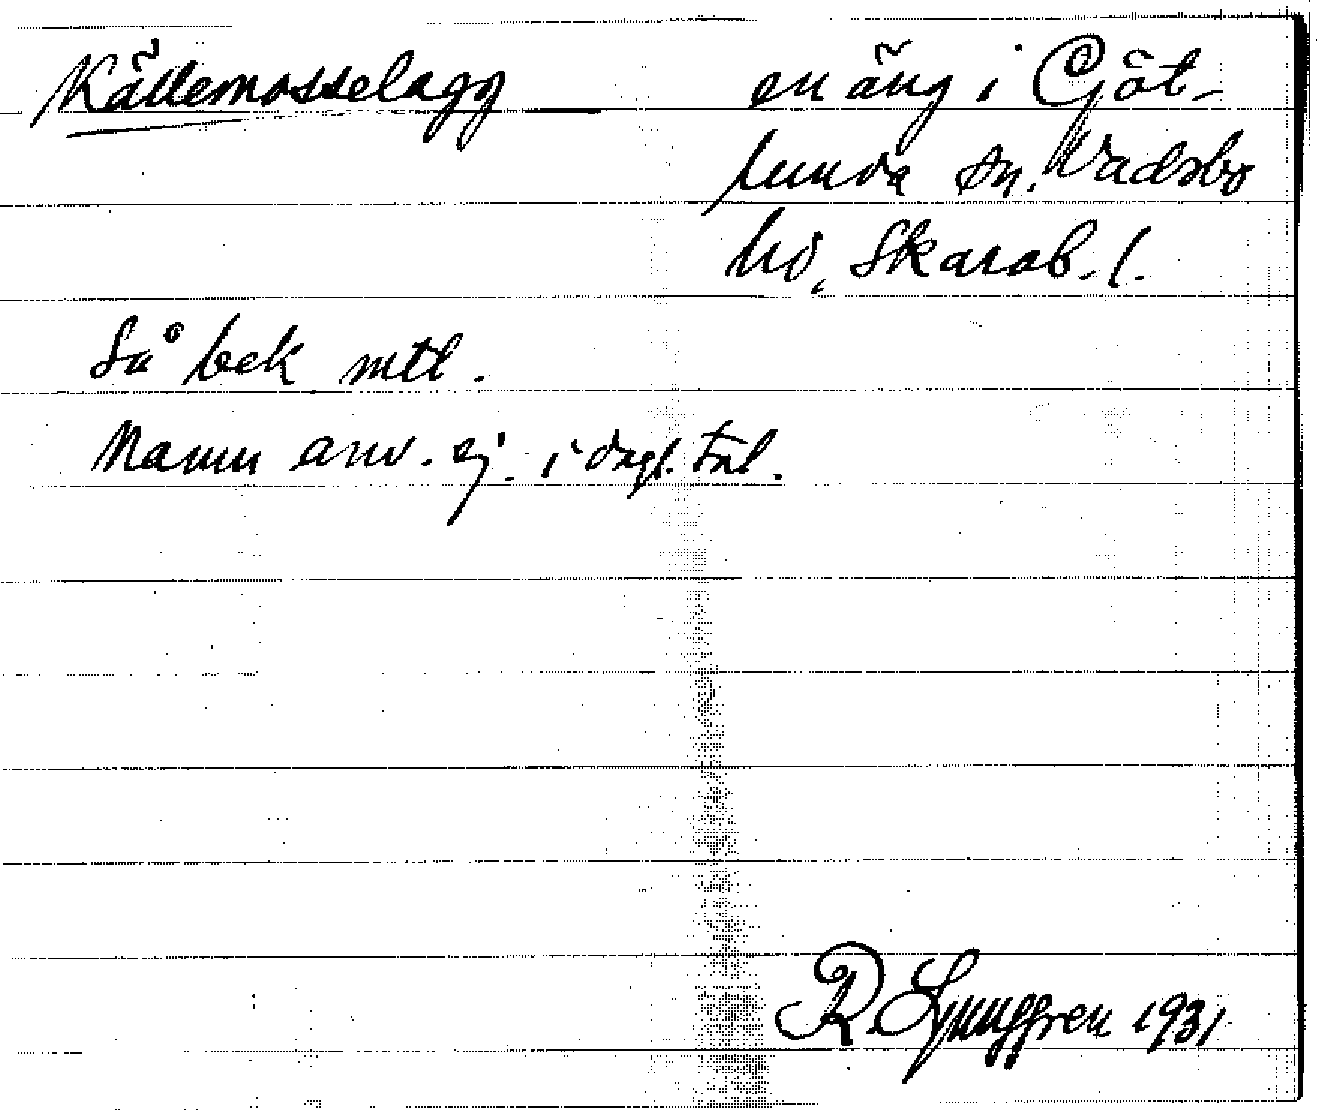 Källemosselagg en äng i Göt-
lunda sn. Vadsbo
hd, Skarab. l.
Så bek mtl.
Namn anv. ej i dagl. tal.
R. Ljunggren 1931